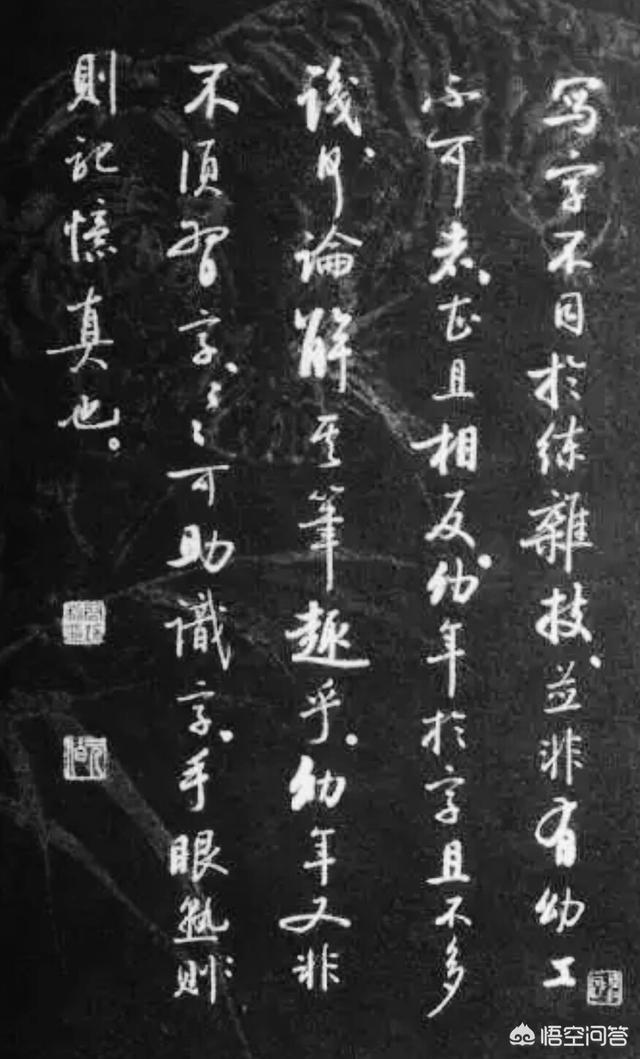 寫字不同於練雜技、並非有幼工
不可者、甚且相反。幼年於字且不多
識、何論解其筆趣乎。幼年又非
不須習字、〻〻可助識字。手眼熟則
則記憶真也。
悟空问答